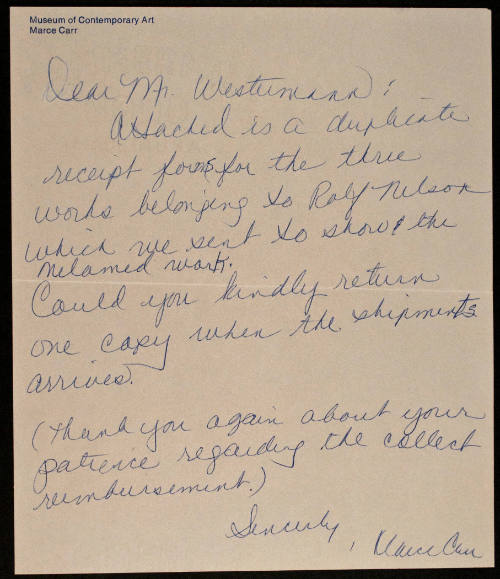 Museum of Contemporary Art
Marce Carr
Dear Mr. Westermann:
Attached is a duplicate
receipt forms for the three
works belonging to Rolf Nelson
which we sent to show & the
Melamed work.
Could you kindly return
one copy when the shipments
arrives.
(Thank you again about your
patience regarding the collect
reimbursement.)
Sincerely,
Marce Carr